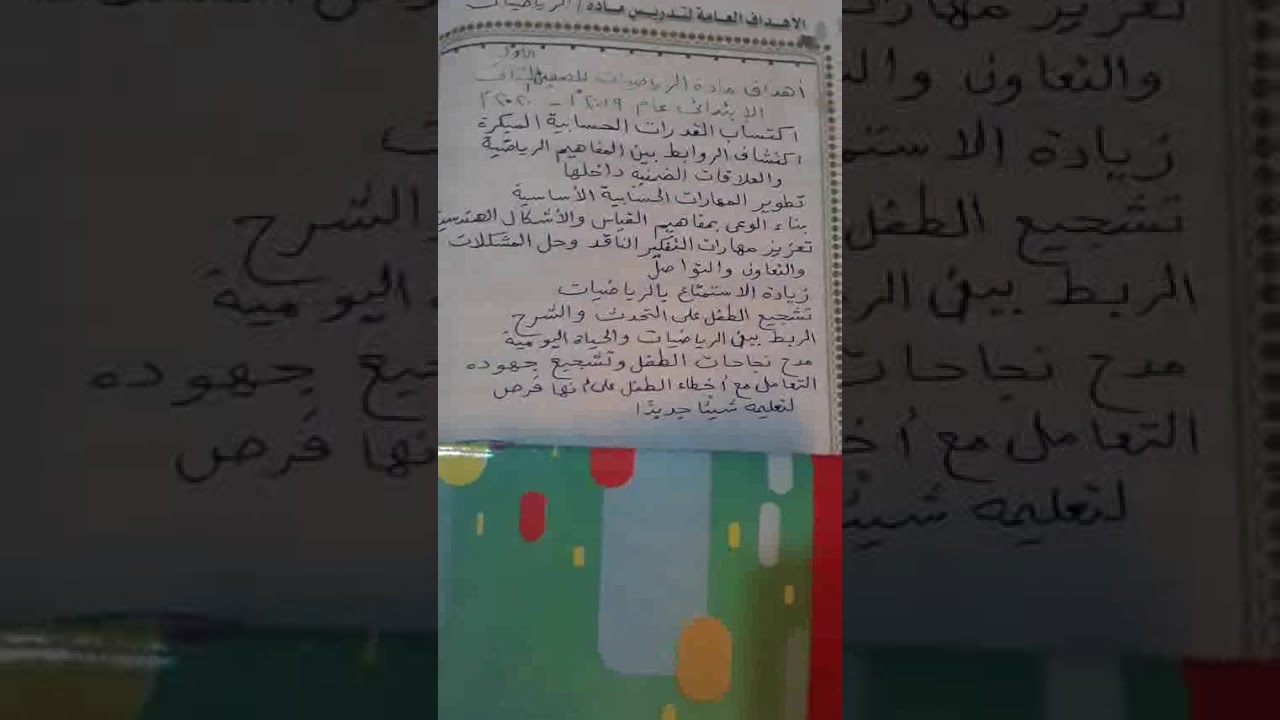 الأهداف العامة لتدريس مادة / الرياضيات
الأول
أهداف مادة الرياضيات للصف
الإبتدائى عام ٢٠١٩م - ٢٠٢٠
اكتساب القدرات الحسابية المبكرة
اكتشاف الروابط بين المفاهيم الرياضية
والعلاقات الضمنية داخلها
تطوير المهارات الحسابية الأساسية
بناء الوعى بمفاهيم القياس والأشكال الهندسية
تعزيز مهارات التفكير الناقد وحل المشكلات
والتعاون والتواصل
زيادة الاستمتاع بالرياضيات
تشجيع الطفل على التحدث والشرح
الربط بين الرياضيات والحياة اليومية
مدح نجاحات الطفل وتشجيع جهوده
التعامل مع أخطاء الطفل على أنها فرص
لتعليمه شيئًا جديدًا